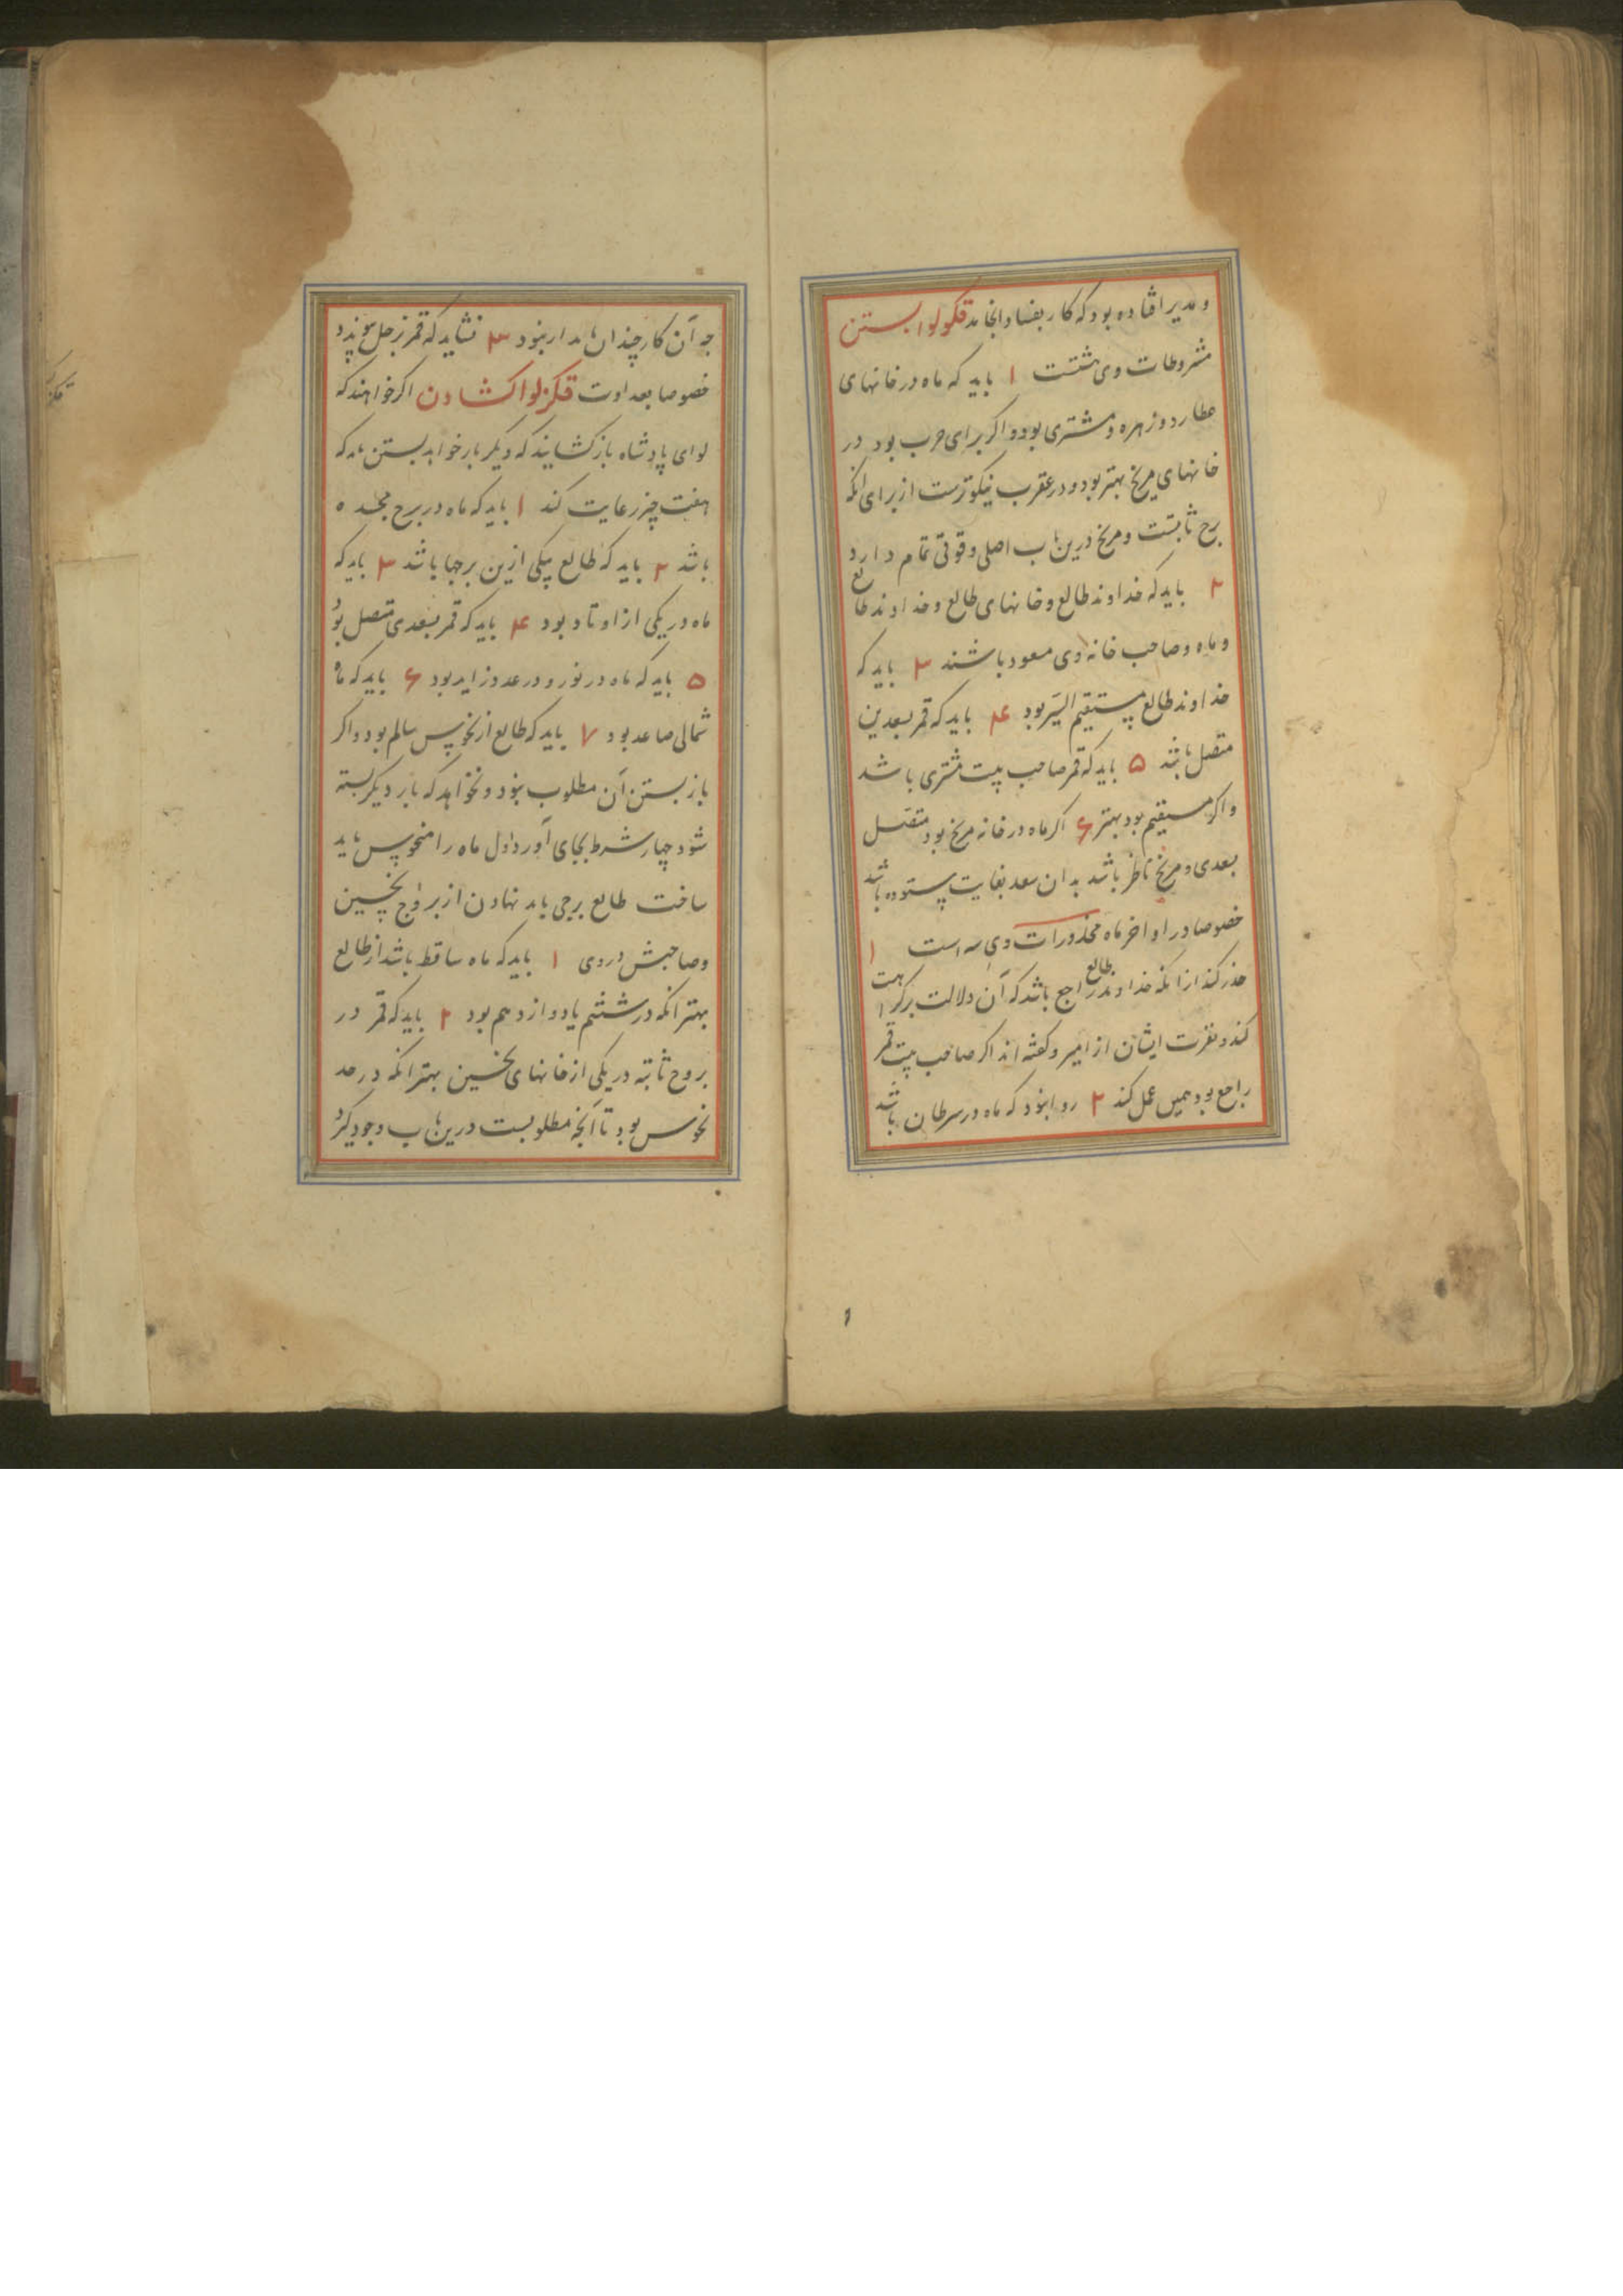 و مدیر افتاده بود که کار بفساد انجامد قکو لوا بستن
مشروطات وی هشتست ۱ باید که ماه در خانهای
عطارد و زهره و مشتری بود و اکر برای حرب بود در
خانهای مریخ بهتر بود و در عقرب نیکوترست از برای انکه
برج ثابتست و مریخ درین باب اصلی و قوتی تمام دارد
۲ باید که خداوند طالع و خانهای طالع و خداوند طالع
و ماه و صاحب خانه وی مسعود باشند ۳ باید که
خداوند طالع مستقیم السیر بود ۴ باید که قمر بسعدین
متصل باشد ۵ باید که قمر صاحب بیت مشتری باشد
و اکر مستقیم بود بهتر ۶ اکر ماه در خانه مریخ بود متصل
بسعدی و مریخ ناظر باشد بدان سعد بغایت ستوده باشد
خصوصا در اواخر ماه محذورات وی سه است ۱
حذر کند از انکه خداوند طالع راجع باشد که آن دلالت بر کراهت
کند و نفرت ایشان از امیر و کفته اند اکر صاحب بیت قمر
راجع بود همین عمل کند ۲ روا نبود که ماه در سرطان باشد
جه آن کار چندان پایدار نبود ۳ نشاید که قمر بزحل پیوندد
خصوصا بعداوت قکز لوا کشادن اکر خواهند که
لوای پادشاه باز کشایند که دیکر بار خواهد بستن باید که
هفت چیز رعایت کند ۱ باید که ماه در برج مجسده
باشد ۲ باید که طالع یکی ازین برجها باشد ۳ باید که
ماه در یکی از اوتاد بود ۴ باید که قمر بسعدی متصل بود
۵ باید که ماه در نور و در عدد زاید بود ۶ باید که ماه
شمالی صاعد بود ۷ باید که طالع از نحوس سالم بود و اکر
باز بستن آن مطلوب نبود و نخواهد که بار دیکر بسته
شود چهار شرط بجای آورد اول ماه را منحوس باید
ساخت طالع برجی باید نهادن از بروج نحسین
و صاحبش در وی ۱ باید که ماه ساقط باشد از طالع
بهتر انکه در ششم یا دوازدهم بود ۲ باید که قمر در
بروج ثابته در یکی از خانهای نحسین بهتر انکه در حد
نحوس بود تا آنچه مطلوبست درین باب وجود کیرد